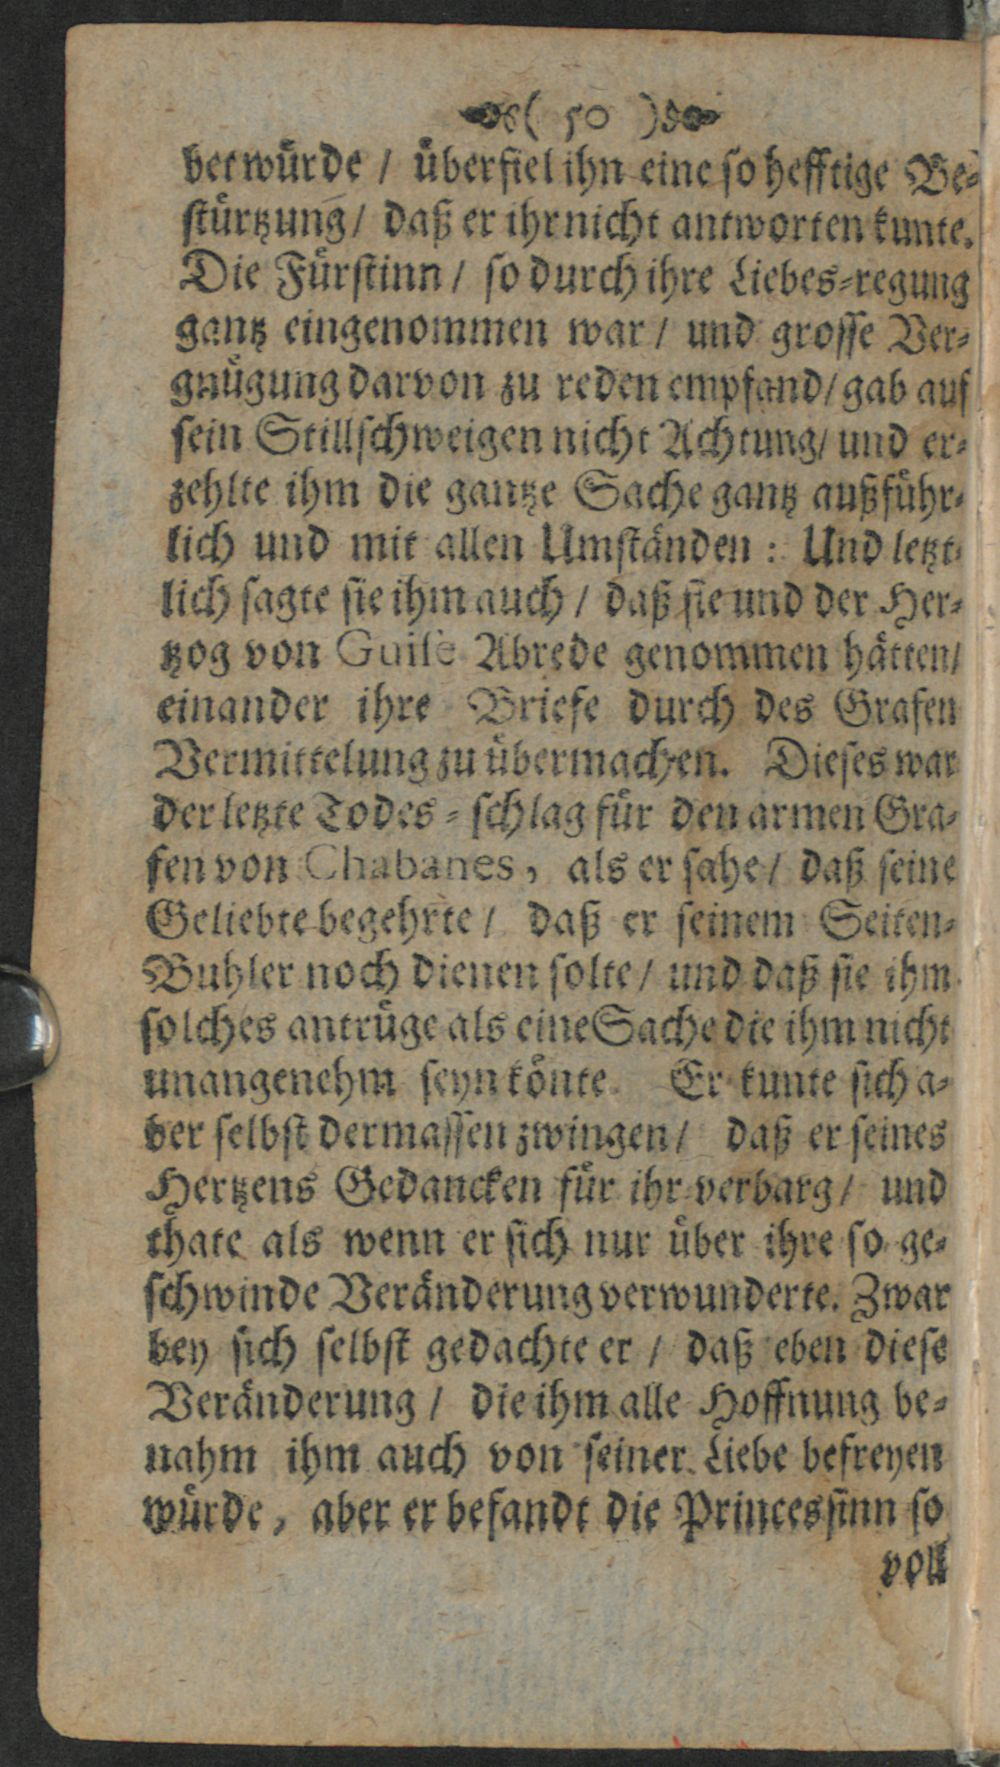 ( 50 )
bet würde / überfiel ihn eine so hefftige Be-
stürtzung / daß er ihr nicht antworten kunte.
Die Fürstinn / so durch ihre Liebes-regung
gantz eingenommen war / und grosse Ver-
gnügung darvon zu reden empfand / gab auf
sein Stillschweigen nicht Achtung / und er-
zehlte ihm die gantze Sache gantz außführ-
lich und mit allen Umständen : Und letzt-
lich sagte sie ihm auch / daß sie und der Her-
tzog von Guise Abrede genommen hätten /
einander ihre Briefe durch des Grafen
Vermittelung zu übermachen. Dieses war
der letzte Todes-schlag für den armen Gra-
fen von Chabanes, als er sahe / daß seine
Geliebte begehrte / daß er seinem Seiten-
Buhler noch dienen solte / und daß sie ihm
solches antrüge als eine Sache die ihm nicht
unangenehm seyn könte. Er kunte sich a-
ber selbst dermassen zwingen / daß er seines
Hertzens Gedancken für ihr verbarg / und
thate als wenn er sich nur über ihre so ge-
schwinde Veränderung verwunderte. Zwar
bey sich selbst gedachte er / daß eben diese
Veränderung / die ihm alle Hoffnung be-
nahm ihm auch von seiner Liebe befreyen
würde, aber er befandt die Princessinn so
voll